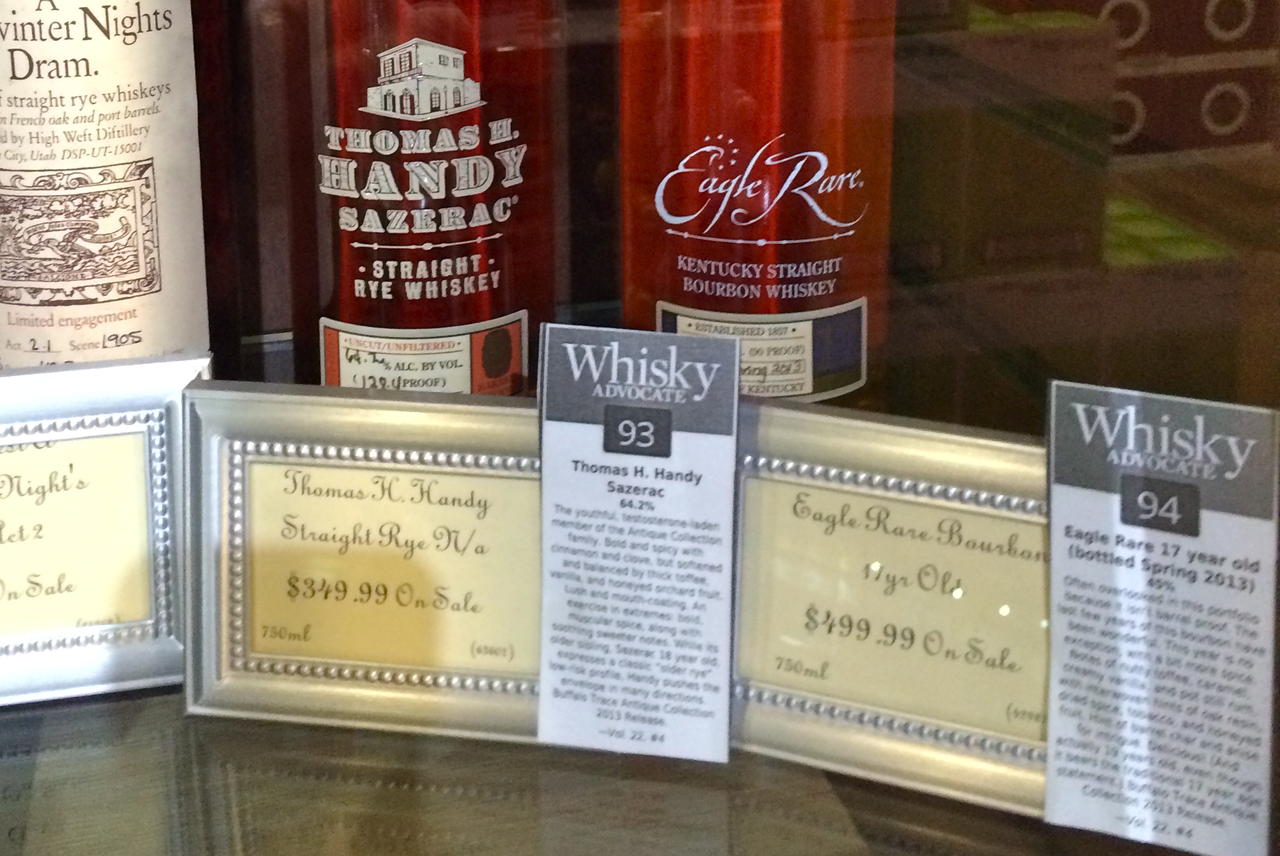 A
winter Nights
Dram.
straight rye whiskeys
n French oak and port barrels.
d by High West Distillery
City, Utah DSP-UT-15001
Limited engagement
Act 2.1 Scene 1905
Night's
Act 2
On Sale
THOMAS H.
HANDY
SAZERAC
· STRAIGHT ·
RYE WHISKEY
· UNCUT/UNFILTERED ·
% ALC. BY VOL.
(128.4 PROOF)
Eagle Rare
KENTUCKY STRAIGHT
BOURBON WHISKEY
· ESTABLISHED 1857 ·
(90 PROOF)
Spring 2013
KENTUCKY
Thomas H. Handy
Straight Rye N/a
$349.99 On Sale
750ml
Whisky
ADVOCATE
93
Thomas H. Handy
Sazerac
64.2%
The youthful, testosterone-laden
member of the Antique Collection
family. Bold and spicy with
cinnamon and clove, but softened
and balanced by thick toffee,
vanilla, and honeyed orchard fruit.
Lush and mouth-coating. An
exercise in extremes: bold,
muscular spice, along with
soothing sweeter notes. While its
older sibling, Sazerac 18 year old,
expresses a classic "older rye"
low-risk profile, Handy pushes the
envelope in many directions.
Buffalo Trace Antique Collection
2013 Release.
—Vol. 22, #4
Eagle Rare Bourbon
17yr Old
$499.99 On Sale
750ml
Whisky
ADVOCATE
94
Eagle Rare 17 year old
(bottled Spring 2013)
45%
Often overlooked in this portfolio
because it isn't barrel proof. The
last few years of this bourbon have
been wonderful. This year is no
exception, with a bit more spice.
Notes of nutty toffee, caramel,
creamy vanilla, and pot still rum,
with interwoven hints of oak resin,
dried spice, tobacco, and honeyed
fruit. Hint of barrel char and anise
for intrigue. Delicious! (And
actually 19 years old, even though
it bears the traditional 17 year age
statement.) Buffalo Trace Antique
Collection 2013 Release.
—Vol. 22, #4